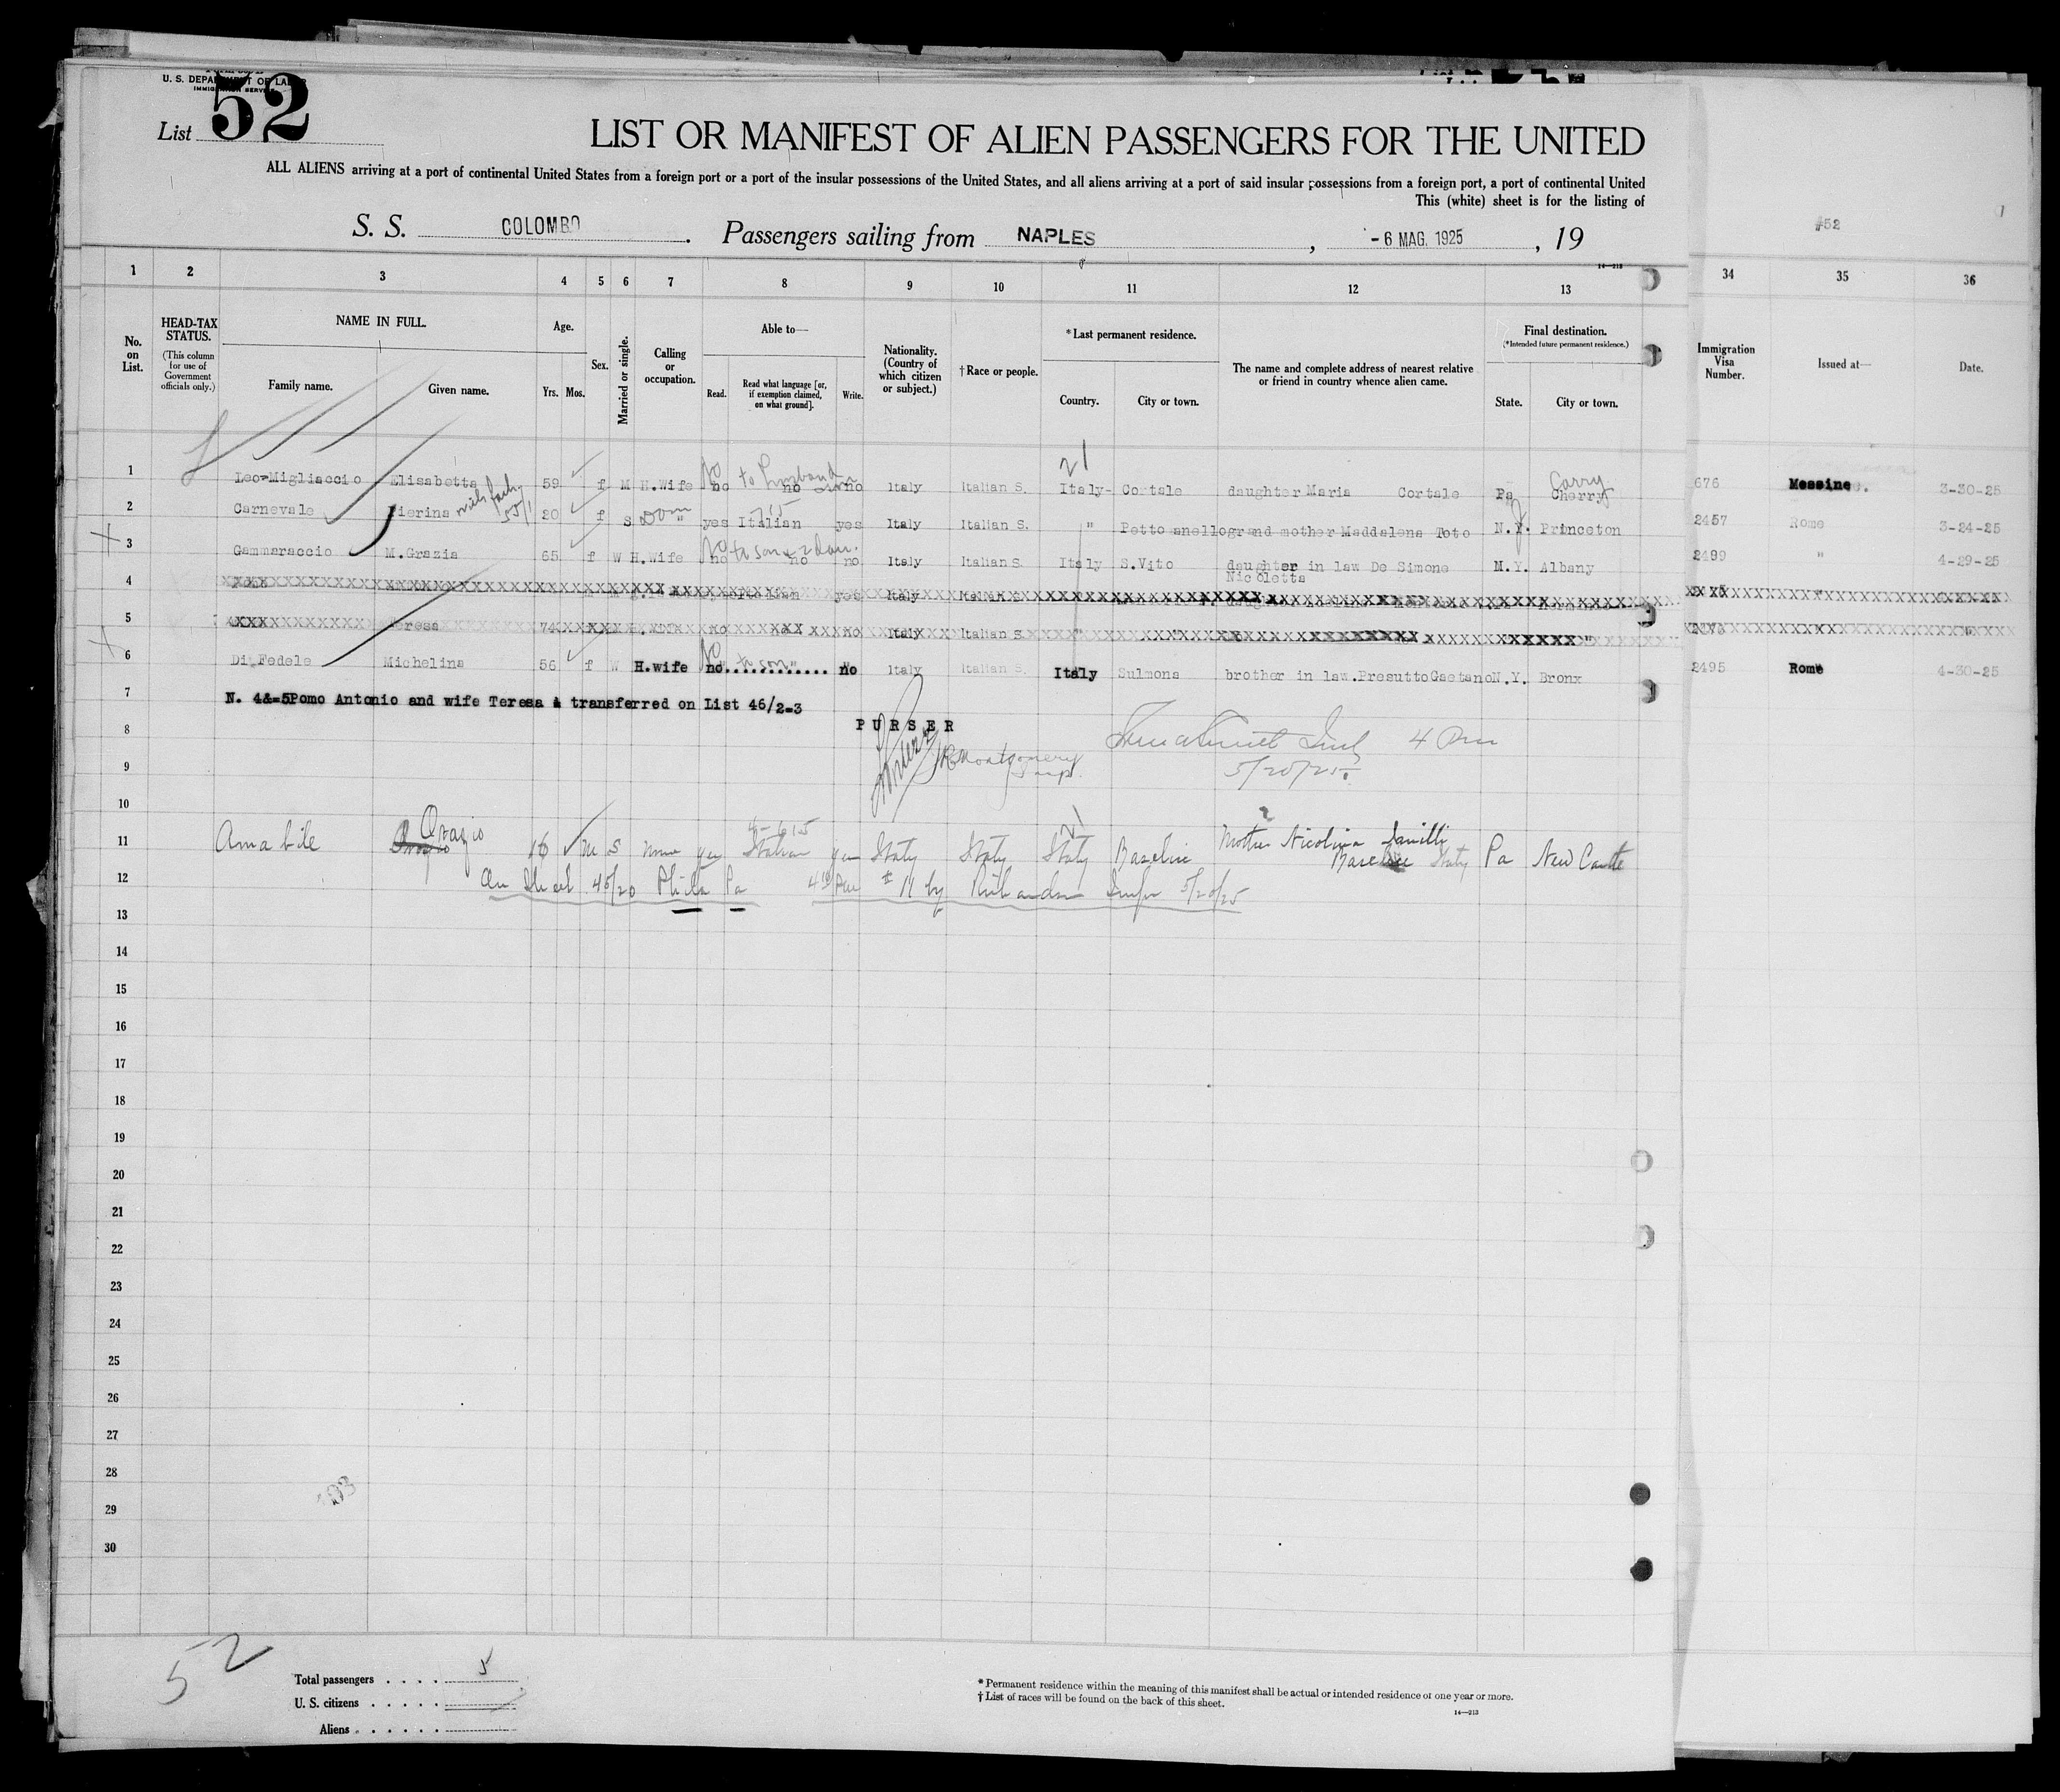 U. S. DEPARTMENT OF LABOR
IMMIGRATION SERVICE
List 52
LIST OR MANIFEST OF ALIEN PASSENGERS FOR THE UNITED
ALL ALIENS arriving at a port of continental United States from a foreign port or a port of the insular possessions of the United States, and all aliens arriving at a port of said insular possessions from a foreign port, a port of continental United
This (white) sheet is for the listing of
S. S. COLOMBO. Passengers sailing from NAPLES, - 6 MAG. 1925, 19
#52
1 2 3 4 5 6 7 8 9 10 11 12 13 34 35 36
No. on List.
HEAD-TAX STATUS.
(This column for use of Government officials only.)
NAME IN FULL.
Family name. Given name.
Age.
Yrs. Mos.
Sex.
Married or single.
Calling or occupation.
Able to—
Read. Read what language [or, if exemption claimed, on what ground]. Write.
Nationality. (Country of which citizen or subject.)
†Race or people.
*Last permanent residence.
Country. City or town.
The name and complete address of nearest relative or friend in country whence alien came.
Final destination.
(*Intended future permanent residence.)
State. City or town.
Immigration Visa Number.
Issued at—
Date.
21
1 Leo-Migliaccio Elisabetta 59 f M H.Wife no no no Italy Italian S. Italy- Cortale daughter Maria Cortale Pa Cherry 676 Messine. 3-30-25
No to husband
Corry
2 Carnevale Pierina 20 f S Dom " yes Italian yes Italy Italian S. " Petto anello grand mother Maddalena Toto N.Y. Princeton 2457 Rome 3-24-25
J
3 Gammaraccio M.Grazia 65 f W H.Wife no no no Italy Italian S. Italy S.Vito daughter in law De Simone Nicoletta N.Y. Albany 2499 " 4-29-25
No to son
4 yes Italy Italian S.
5 Teresa 74 no no Italy Italian S.
6 Di Fedele Michelina 56 f W H.wife no............ no Italy Italian S. Italy Sulmona brother in law.Presutto Gaetano N.Y. Bronx 2495 Rome 4-30-25
No to son
7 N. 4&=5Pomo Antonio and wife Teresa & transferred on List 46/2=3
8 PURSER
4 Pm
9 Montgomery
5/20/25
10
11 Amabile Orazio 16 m S none yes Italian yes Italy Italy Italy Mother Nicolina Pa New Castle
12 Philia Pa #11 by Insp 5/20/25
13
14
15
16
17
18
19
20
21
22
23
24
25
26
27
28
29
30
52
Total passengers . . . . 5
U. S. citizens . . . . .
Aliens . . . . . .
*Permanent residence within the meaning of this manifest shall be actual or intended residence of one year or more.
†List of races will be found on the back of this sheet.
14—213